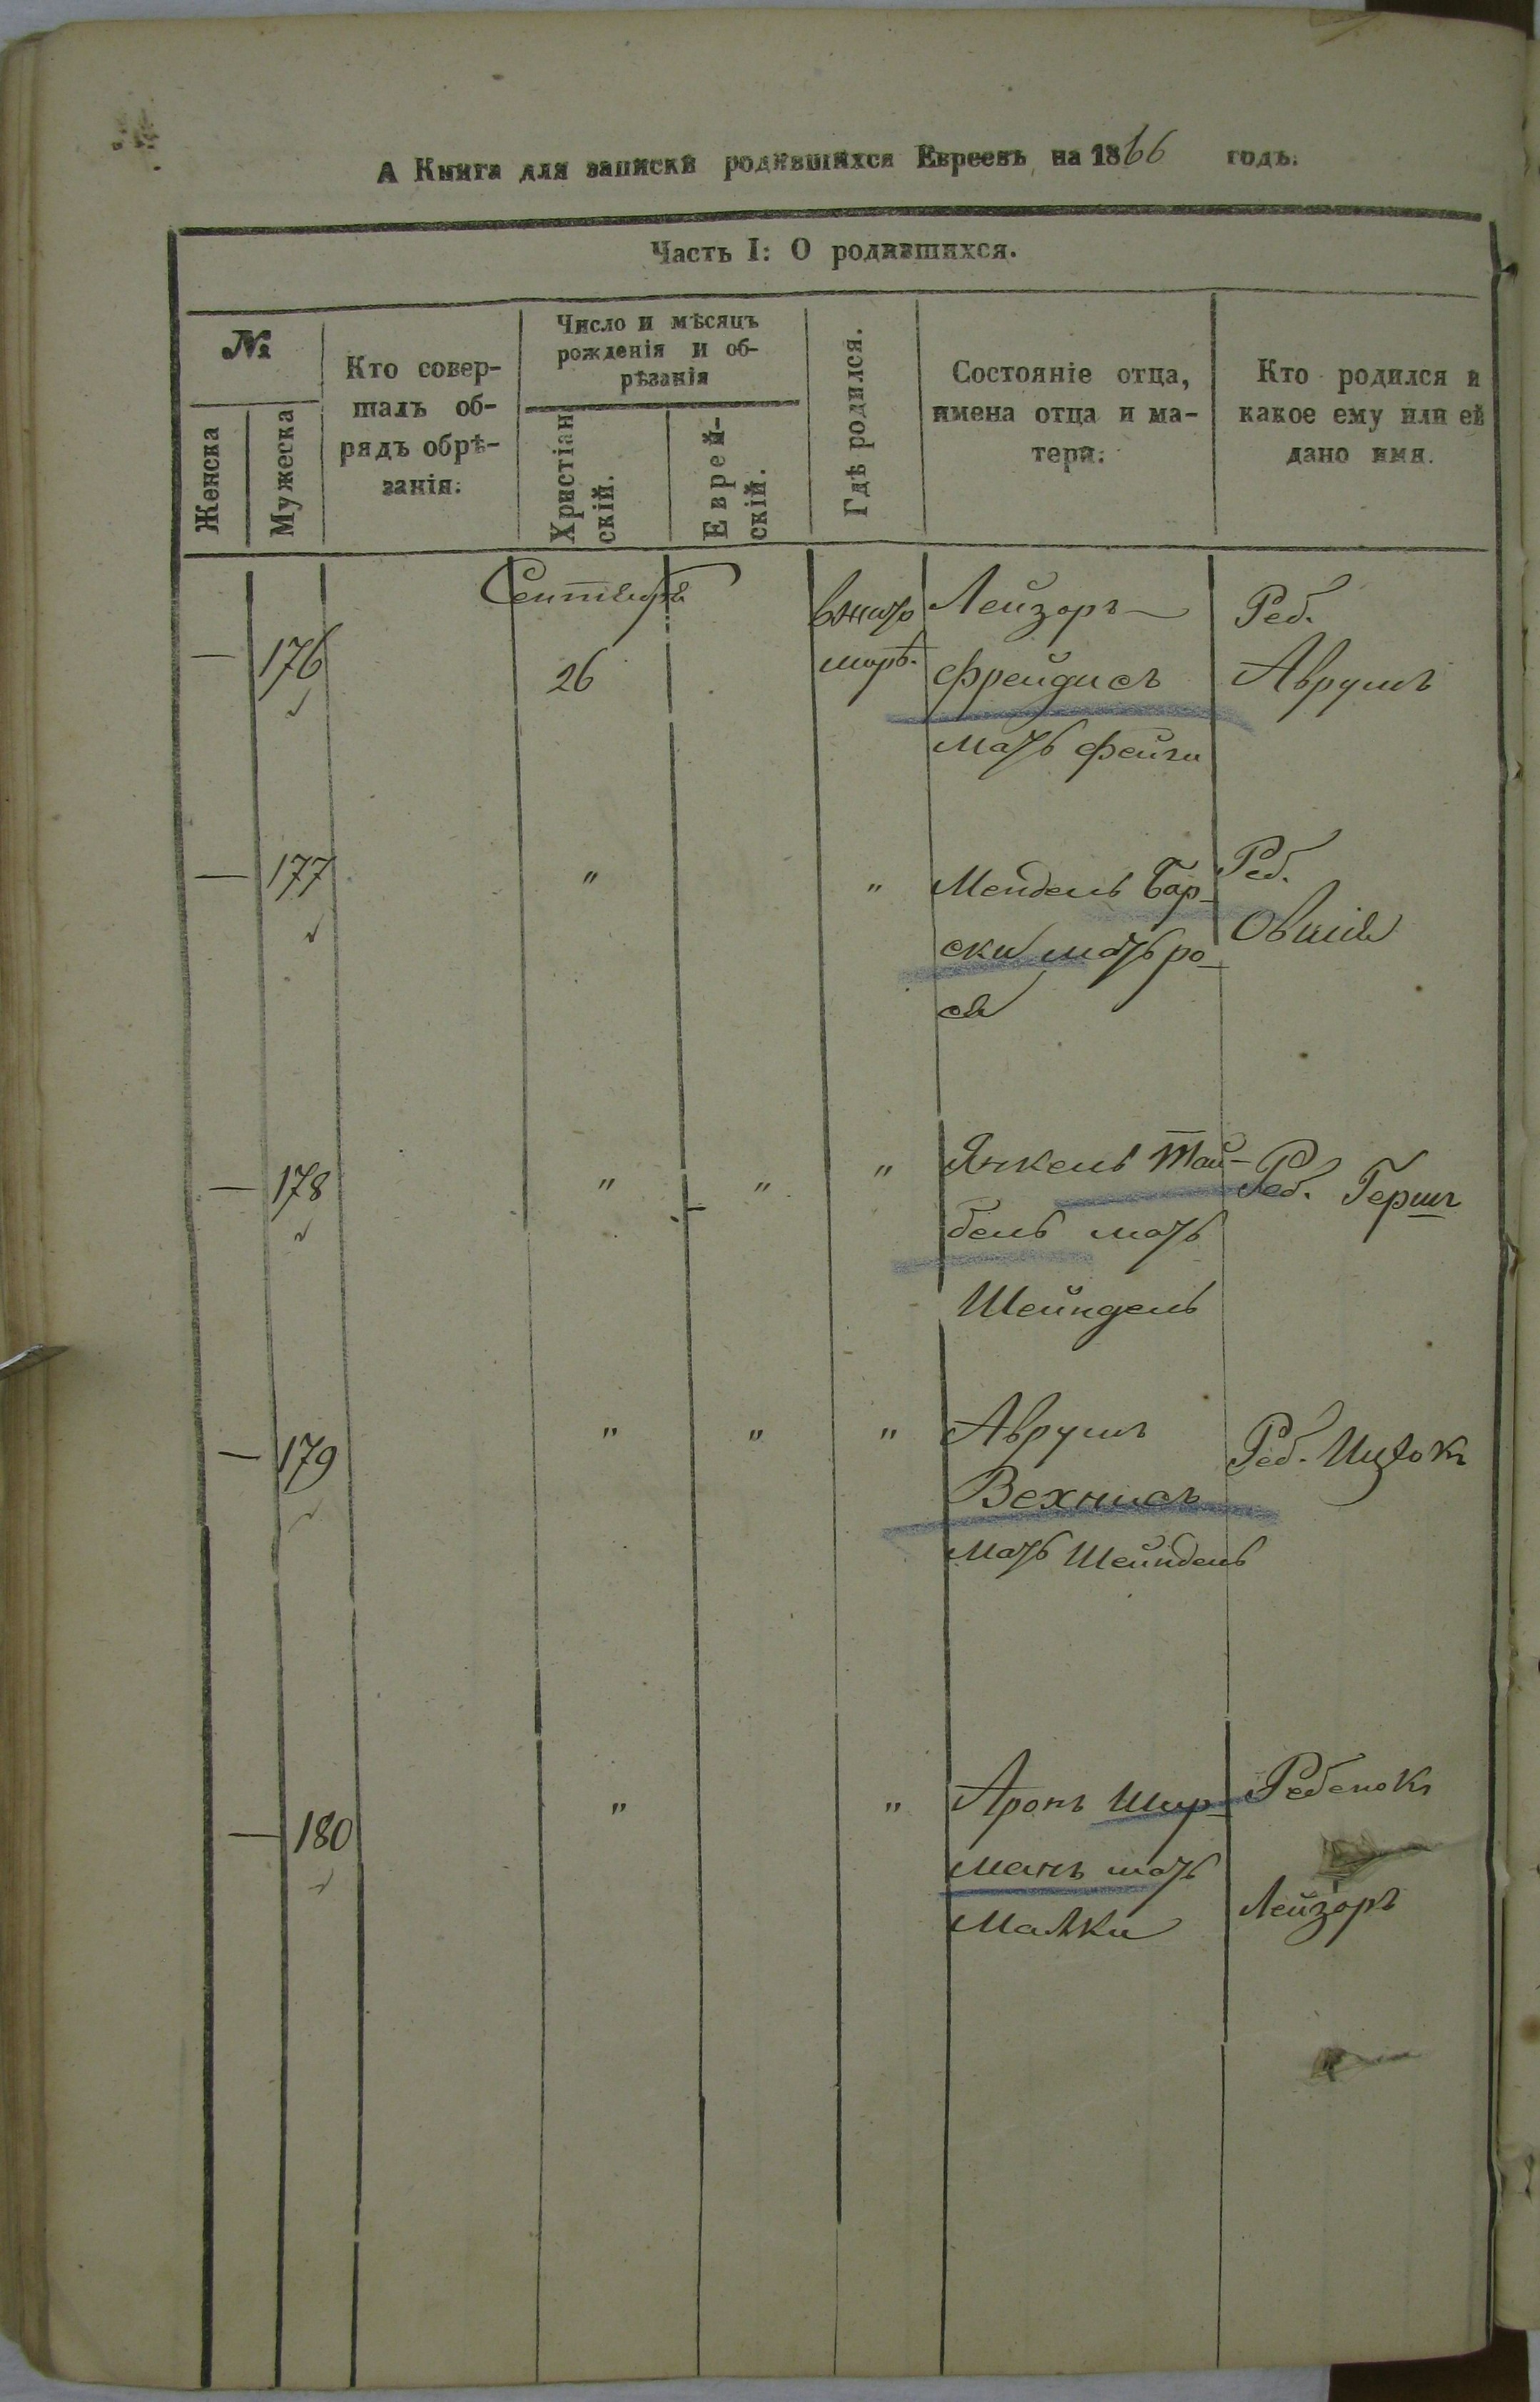 А Книга для записки родившихся Евреевъ на 1866 годъ.
Часть I: О родившихся.
№
Женска
Мужеска
Кто совер-
шалъ об-
рядъ обрѣ-
занія.
Число и мѣсяцъ
рожденія и об-
рѣзанія
Христіан
скій.
Еврей-
скій.
Гдѣ родился.
Состояніе отца,
имена отца и ма-
тери.
Кто родился и
какое ему или ей
дано имя.
Сентября
— 176 26
Лейзоръ
Фрейдисъ
мать Фейги
Реб.
Аврумъ
— 177 " "
Мендель Бар-
ски мать ро-
ся
Реб.
Овшія
— 178 " " "
Янкель Тай-
бель мать
Шейндель
Реб. Гершъ
— 179 " " "
Аврумъ
Вехнисъ
мать Шейндель
Реб. Ицхокъ
— 180 " "
Аронъ Шир-
манъ мать
Малки
Ребенокъ
Лейзоръ